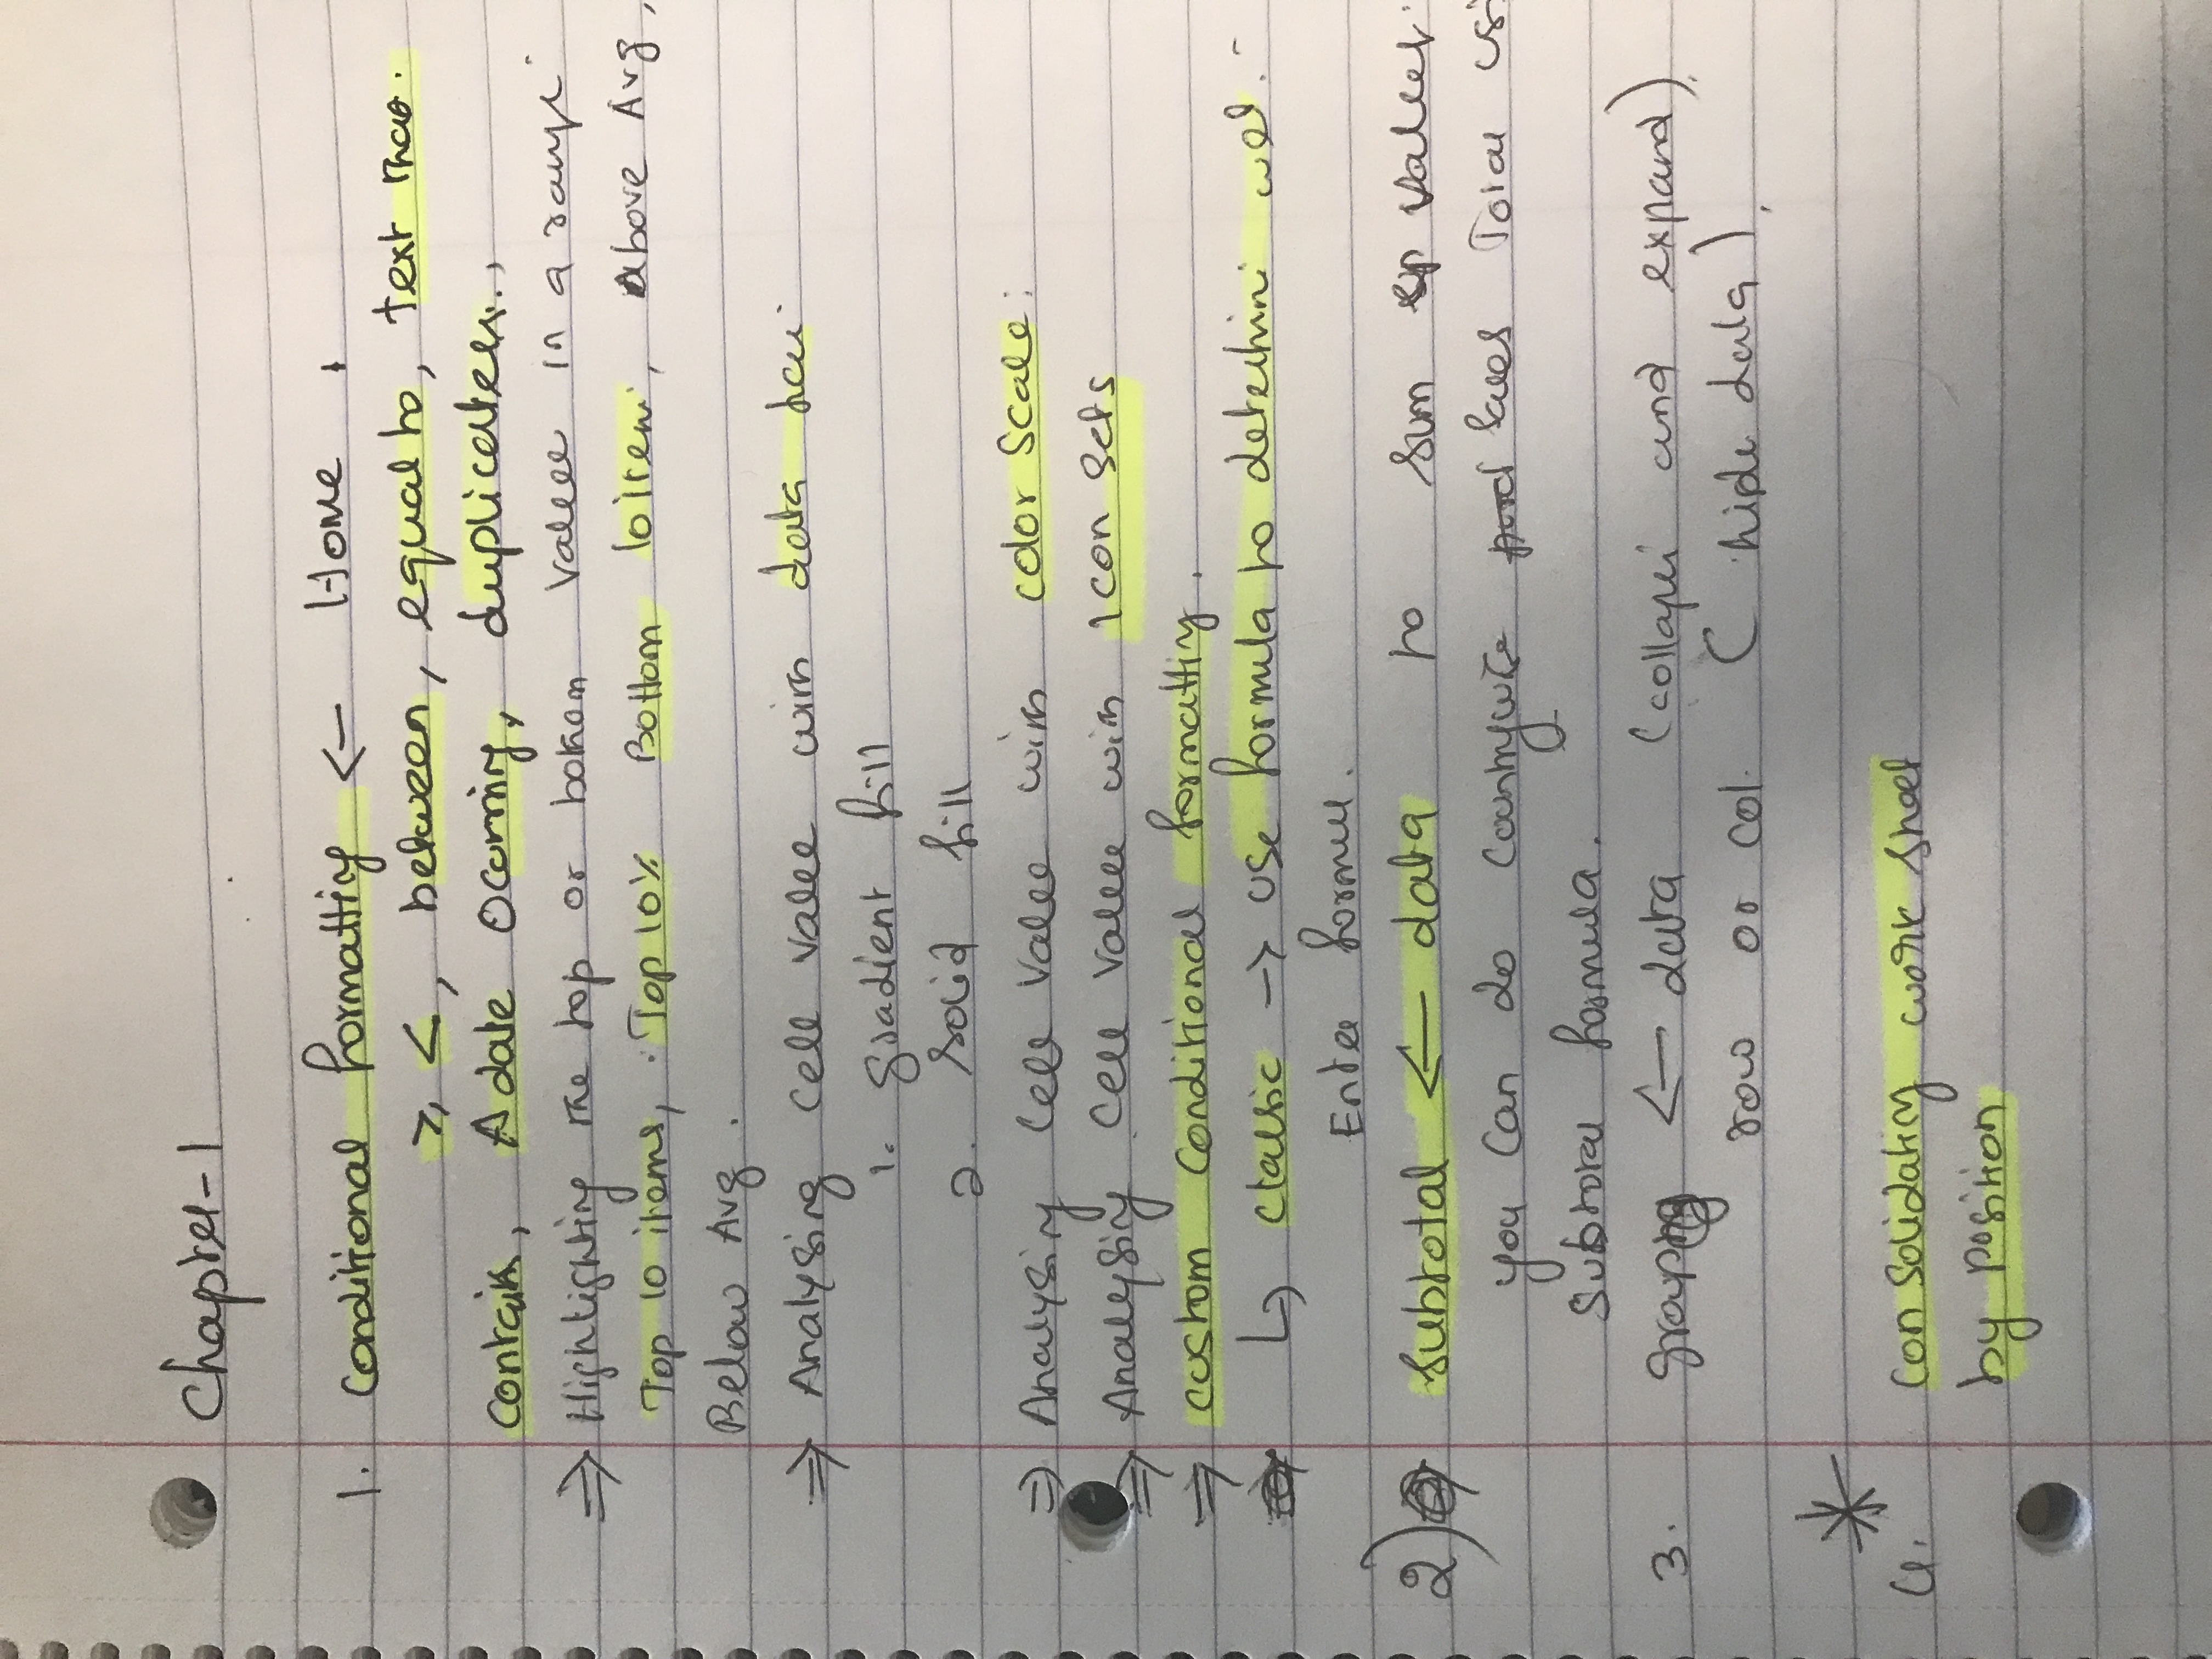 Chapter-1
1. Conditional formatting ← Home
>, <, between, equal to, text that
contain, A date Occurring, duplicates.,
⇒ Highlighting the top or bottom Value in a range
Top 10 items, Top 10% Bottom 10 item, Above Avg,
Below Avg.
⇒ Analysing Cell Value with data bar
1. gradient fill
2. Solid fill
⇒ Analysing Cell Value with color Scale:
⇒ Analysing Cell Value with Icon Sets
⇒ custom Conditional formatting.
↳ Classic → Use formula to
Enter
2) Subtotal ← data to Sum Values.
you Can do Countrywise Sales Total
Subtotal formula.
3. grouping ← data (collapse and expand)
row or col. (hide data).
*
4. Consolidating work sheet
by Position